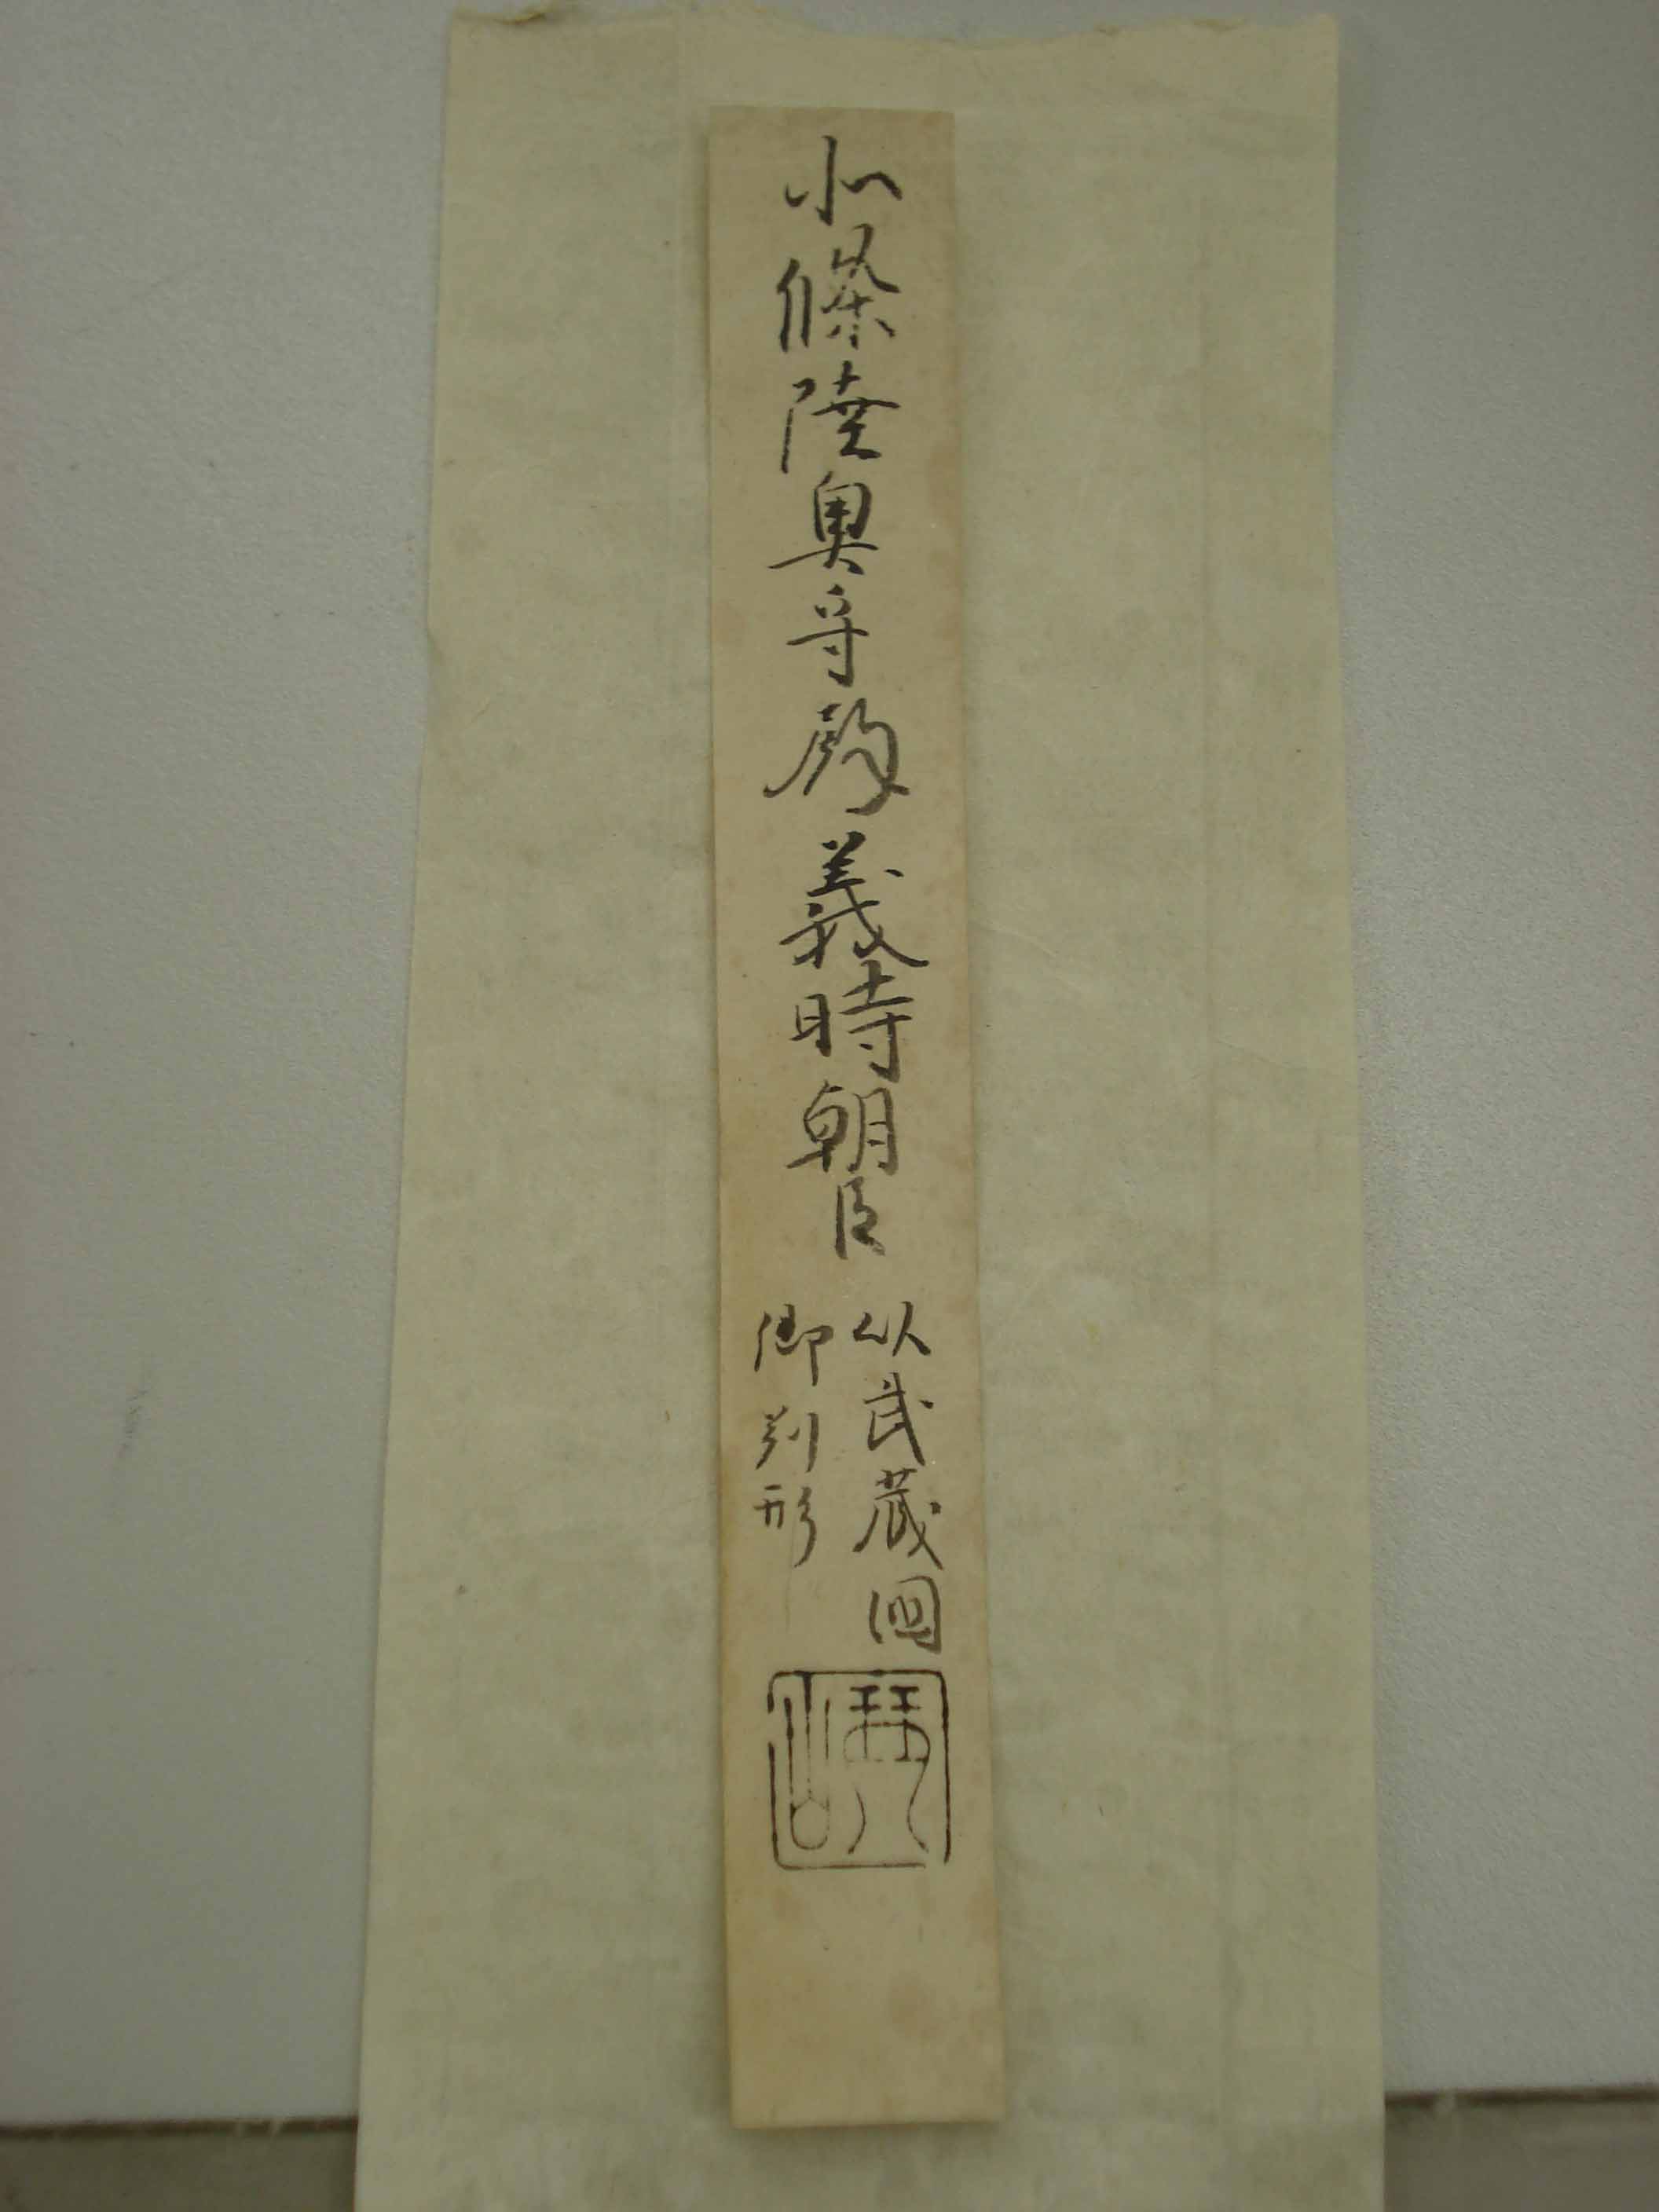 北條陸奥守殿義時朝臣
以武蔵国
御判形
琴山